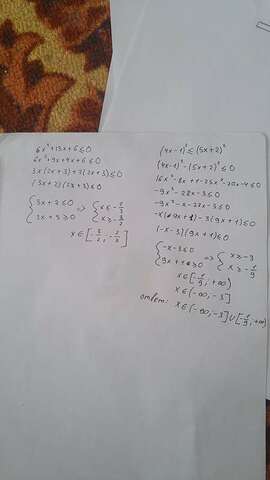 6x²+13x+6≤0
6x²+9x+4x+6≤0
3x(2x+3)+2(2x+3)≤0
(3x+2)(2x+3)≤0
{3x+2≤0 => {x≤-2/3
{2x+3≥0 {x≥-3/2
x∈[-3/2, -2/3]
(4x-1)²≤(5x+2)²
(4x-1)²-(5x+2)²≤0
16x²-8x+1-25x²-20x-4≤0
-9x²-28x-3≤0
-9x²-x-27x-3≤0
-x(9x+1)-3(9x+1)≤0
(-x-3)(9x+1)≤0
{-x-3≤0 => {x≥-3
{9x+1≥0 {x≥-1/9
x∈[-1/9; +∞)
x∈(-∞; -3]
ответ: x∈(-∞; -3]∪[-1/9; +∞)